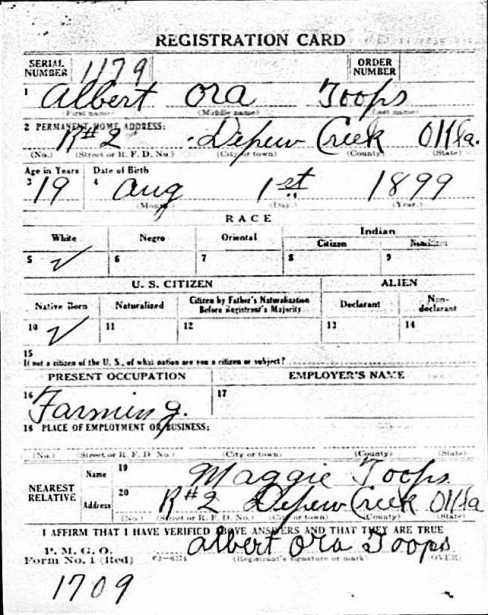 REGISTRATION CARD
SERIAL NUMBER 1179 ORDER NUMBER
1 Albert Ora Toops
(First name) (Middle name) (Last name)
2 PERMANENT HOME ADDRESS:
R#2 Depew Creek Okla.
(No.) (Street or R. F. D. No.) (City or town) (County) (State)
Age in Years Date of Birth
3 19 4 Aug 1st 1899
(Month) (Day) (Year)
RACE
White Negro Oriental Indian
Citizen Noncitizen
5 ✓ 6 7 8 9
U. S. CITIZEN ALIEN
Native Born Naturalized Citizen by Father's Naturalization Before Registrant's Majority Declarant Non-declarant
10 ✓ 11 12 13 14
15
If not a citizen of the U. S., of what nation are you a citizen or subject?
PRESENT OCCUPATION EMPLOYER'S NAME
16 Farming. 17
18 PLACE OF EMPLOYMENT OR BUSINESS:
(No.) (Street or R. F. D. No.) (City or town) (County) (State)
NEAREST RELATIVE Name 19 Maggie Toops
Address 20 R#2 Depew Creek Okla
(No.) (Street or R. F. D. No.) (City or town) (County) (State)
I AFFIRM THAT I HAVE VERIFIED ABOVE ANSWERS AND THAT THEY ARE TRUE
P. M. G. O.
Form No. 1 (Red) Albert Ora Toops
(Registrant's signature or mark) (OVER)
1709